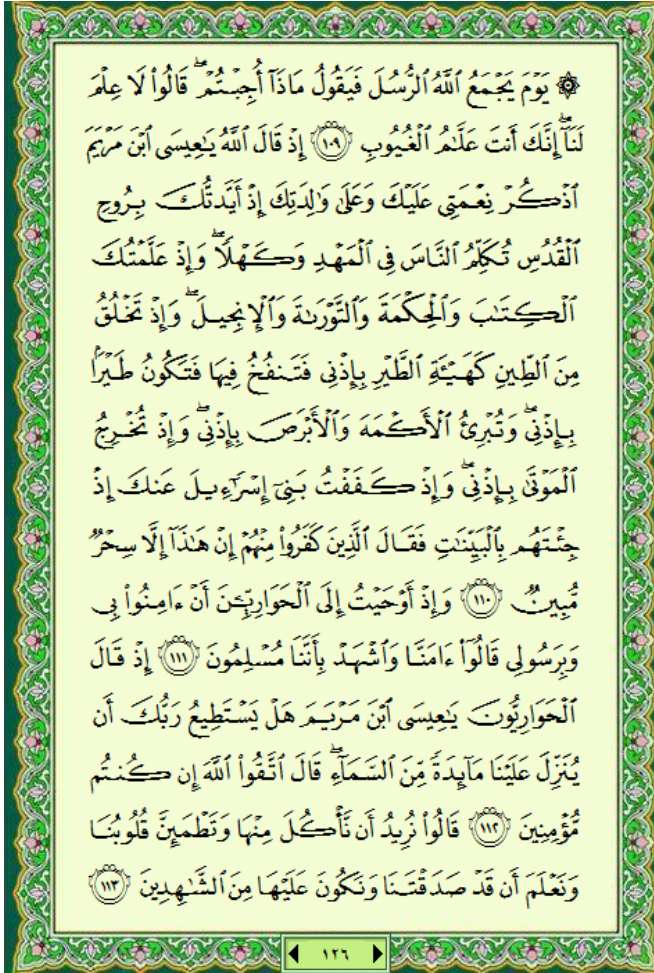 ۞ يَوْمَ يَجْمَعُ ٱللَّهُ ٱلرُّسُلَ فَيَقُولُ مَاذَآ أُجِبْتُمْ ۖ قَالُوا۟ لَا عِلْمَ
لَنَآ ۖ إِنَّكَ أَنتَ عَلَّٰمُ ٱلْغُيُوبِ ﴿١٠٩﴾ إِذْ قَالَ ٱللَّهُ يَٰعِيسَى ٱبْنَ مَرْيَمَ
ٱذْكُرْ نِعْمَتِى عَلَيْكَ وَعَلَىٰ وَٰلِدَتِكَ إِذْ أَيَّدتُّكَ بِرُوحِ
ٱلْقُدُسِ تُكَلِّمُ ٱلنَّاسَ فِى ٱلْمَهْدِ وَكَهْلًا ۖ وَإِذْ عَلَّمْتُكَ
ٱلْكِتَٰبَ وَٱلْحِكْمَةَ وَٱلتَّوْرَىٰةَ وَٱلْإِنجِيلَ ۖ وَإِذْ تَخْلُقُ
مِنَ ٱلطِّينِ كَهَيْـَٔةِ ٱلطَّيْرِ بِإِذْنِى فَتَنفُخُ فِيهَا فَتَكُونُ طَيْرًۢا
بِإِذْنِى ۖ وَتُبْرِئُ ٱلْأَكْمَهَ وَٱلْأَبْرَصَ بِإِذْنِى ۖ وَإِذْ تُخْرِجُ
ٱلْمَوْتَىٰ بِإِذْنِى ۖ وَإِذْ كَفَفْتُ بَنِىٓ إِسْرَٰٓءِيلَ عَنكَ إِذْ
جِئْتَهُم بِٱلْبَيِّنَٰتِ فَقَالَ ٱلَّذِينَ كَفَرُوا۟ مِنْهُمْ إِنْ هَٰذَآ إِلَّا سِحْرٌ
مُّبِينٌ ﴿١١٠﴾ وَإِذْ أَوْحَيْتُ إِلَى ٱلْحَوَارِيِّـۧنَ أَنْ ءَامِنُوا۟ بِى
وَبِرَسُولِى قَالُوٓا۟ ءَامَنَّا وَٱشْهَدْ بِأَنَّنَا مُسْلِمُونَ ﴿١١١﴾ إِذْ قَالَ
ٱلْحَوَارِيُّونَ يَٰعِيسَى ٱبْنَ مَرْيَمَ هَلْ يَسْتَطِيعُ رَبُّكَ أَن
يُنَزِّلَ عَلَيْنَا مَآئِدَةً مِّنَ ٱلسَّمَآءِ ۖ قَالَ ٱتَّقُوا۟ ٱللَّهَ إِن كُنتُم
مُّؤْمِنِينَ ﴿١١٢﴾ قَالُوا۟ نُرِيدُ أَن نَّأْكُلَ مِنْهَا وَتَطْمَئِنَّ قُلُوبُنَا
وَنَعْلَمَ أَن قَدْ صَدَقْتَنَا وَنَكُونَ عَلَيْهَا مِنَ ٱلشَّٰهِدِينَ ﴿١١٣﴾
١٢٦